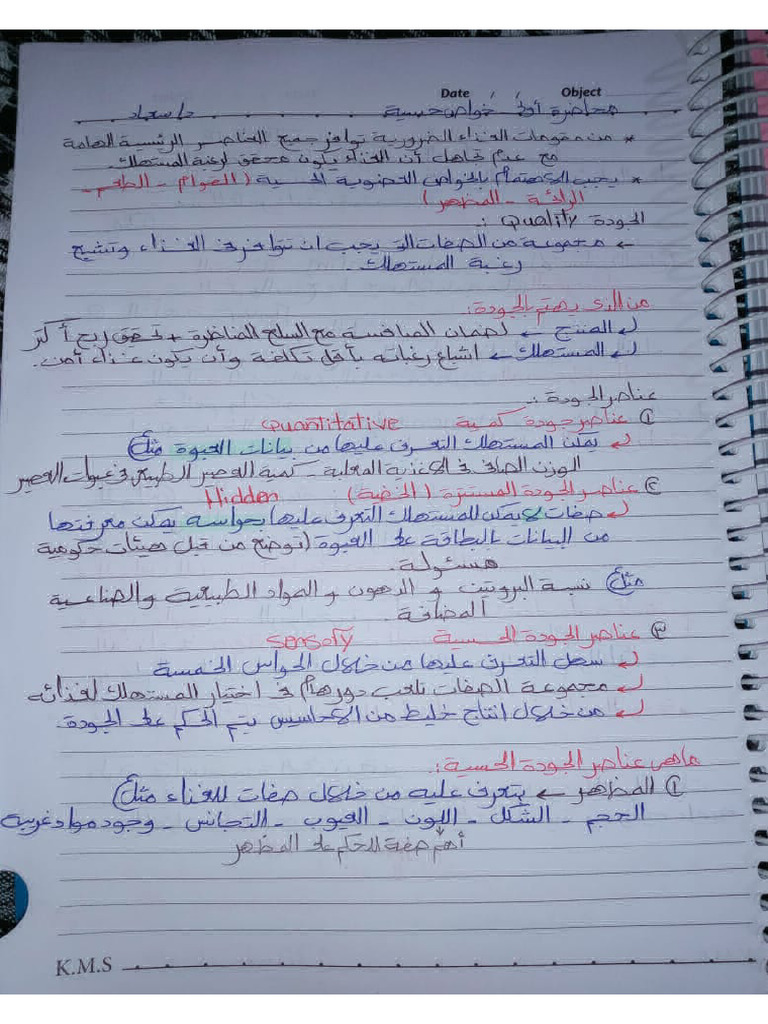 Date / / Object
محاضرة أولى خواص حسية د/ سعاد
* من مقومات الغذاء الضرورية توافر جميع العناصر الرئيسية الهامة
مع عدم تجاهل أن الغذاء يكون محقق لرغبة المستهلك.
* يجب الاهتمام بالخواص العضوية الحسية (القوام - الطعم -
الرائحة - المظهر)
الجودة Quality :.
← مجموعة من الصفات التي يجب ان تتوافر في الغذاء وتشبع
رغبة المستهلك.
من الذي يهتم بالجودة:
المنتج ← لضمان المنافسة مع السلع المناظرة + تحقق ربح أكثر
المستهلك ← اشباع رغباته بأقل تكلفة وأن يكون غذاء آمن.
عناصر الجودة :.
① عناصر جودة كمية Quantitative
يمكن المستهلك التعرف عليها من بيانات العبوة مثل
الوزن الصافي في الاغذية المعلبة - كمية العصير الطبيعي في عبوات العصير
② عناصر الجودة المستترة (الخفية) Hidden
صفات لا يمكن للمستهلك التعرف عليها بحواسه يمكن معرفتها
من البيانات بالبطاقة على العبوة (توضع من قبل هيئات حكومية
مسئولة.
مثل نسبة البروتين و الدهون و المواد الطبيعية والصناعية
المضافة.
③ عناصر الجودة الحسية sensory
سهل التعرف عليها من خلال الحواس الخمسة
مجموعة الصفات تلعب دور هام في اختيار المستهلك لغذائه
من خلال انتاج خليط من الاحاسيس يتم الحكم على الجودة.
ماهى عناصر الجودة الحسية:
① المظهر ← يتعرف عليه من خلال صفات للغذاء مثل
الحجم - الشكل - اللون - العيوب - التجانس - وجود مواد غريبة
أهم صفة للحكم على المظهر
K.M.S